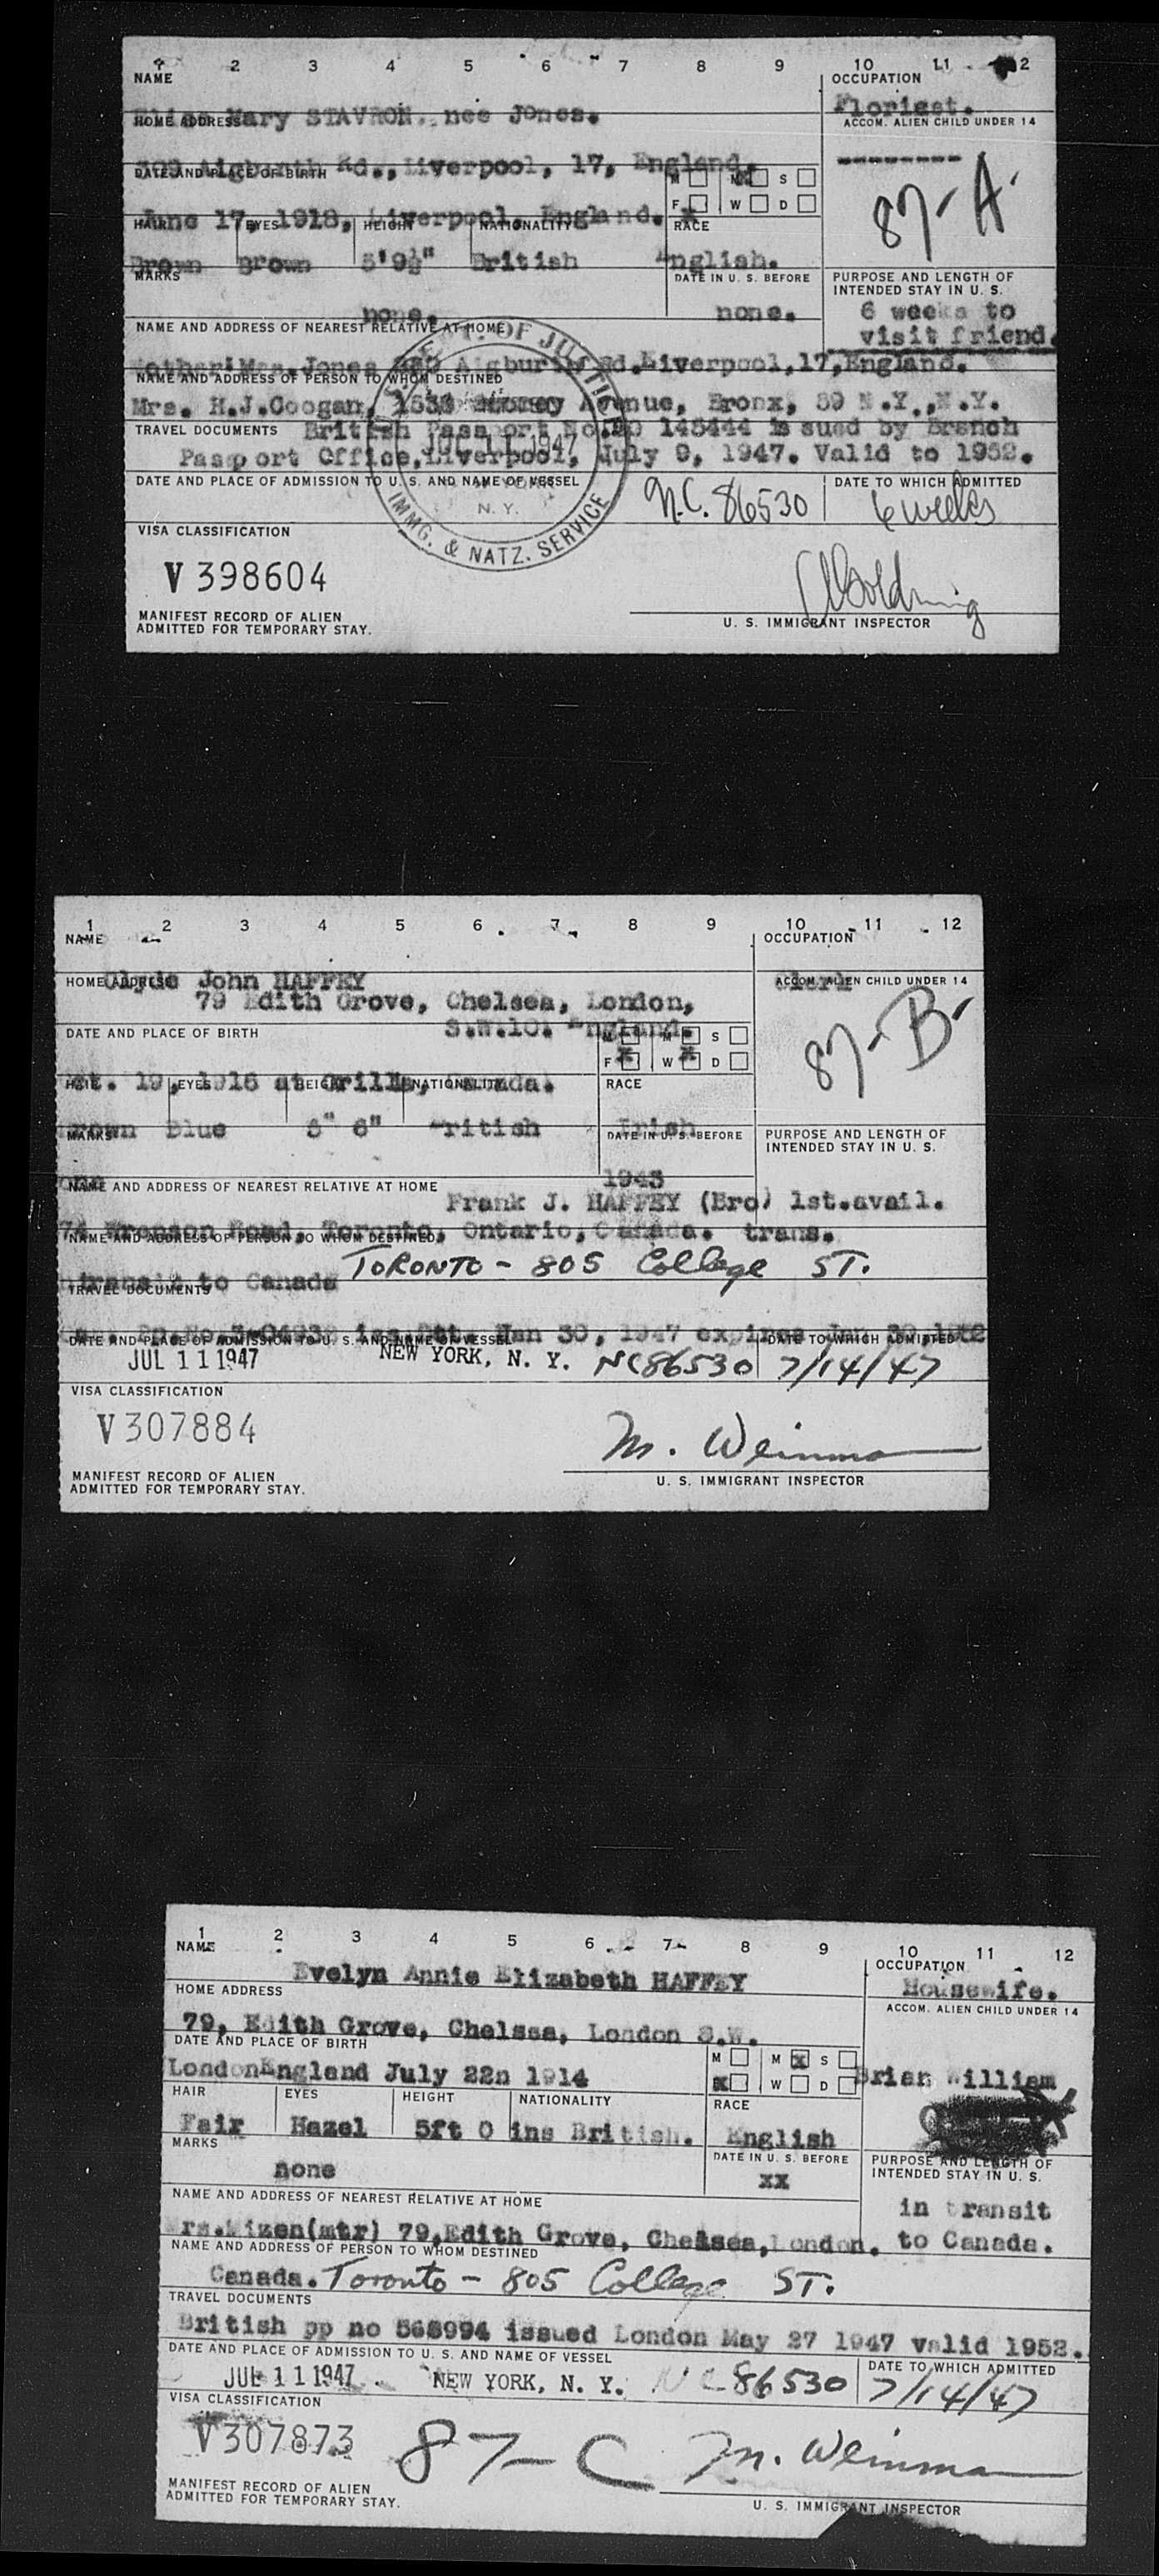 1 2 3 4 5 6 7 8 9 10 11 12
NAME OCCUPATION
Mary STAVRON, nee Jones. Florist.
HOME ADDRESS ACCOM. ALIEN CHILD UNDER 14
Aigburth Rd., Liverpool, 17, England. --------
DATE AND PLACE OF BIRTH M M S
87-A.
June 17, 1918, Liverpool, England. F W D
HAIR EYES HEIGHT NATIONALITY RACE
Brown Brown 5'9½" British English.
MARKS DATE IN U. S. BEFORE PURPOSE AND LENGTH OF
INTENDED STAY IN U. S.
none. none. 6 weeks to
visit friend.
NAME AND ADDRESS OF NEAREST RELATIVE AT HOME
Jones Aigburth Rd. Liverpool, 17, England.
NAME AND ADDRESS OF PERSON TO WHOM DESTINED
Mrs. H.J.Coogan, Avenue, Bronx, 59 N.Y., N.Y.
TRAVEL DOCUMENTS British Passport issued by Branch
Passport Office, Liverpool, July 9, 1947. Valid to 1952.
DATE AND PLACE OF ADMISSION TO U. S. AND NAME OF VESSEL DATE TO WHICH ADMITTED
N.C. 86530 6 weeks
DEPT. OF JUSTICE
JUL 11 1947
N. Y.
IMMG. & NATZ. SERVICE
VISA CLASSIFICATION
V 398604
MANIFEST RECORD OF ALIEN
ADMITTED FOR TEMPORARY STAY.
U. S. IMMIGRANT INSPECTOR
1 2 3 4 5 6 7 8 9 10 11 12
NAME OCCUPATION
Clyde John HAFFEY Clerk
HOME ADDRESS ACCOM. ALIEN CHILD UNDER 14
79 Edith Grove, Chelsea, London,
S.W.10. England.
DATE AND PLACE OF BIRTH M M S
87-B-
F W D
Oct. 19, 1916 at Orillia, Canada.
HAIR EYES HEIGHT NATIONALITY RACE
Brown Blue 6" British Irish
MARKS DATE IN U. S. BEFORE PURPOSE AND LENGTH OF
INTENDED STAY IN U. S.
none
NAME AND ADDRESS OF NEAREST RELATIVE AT HOME
Frank J. HAFFEY (Bro) 1st.avail.
Road, Toronto, Ontario, Canada. trans.
NAME AND ADDRESS OF PERSON TO WHOM DESTINED
in transit to Canada TORONTO - 805 College ST.
TRAVEL DOCUMENTS
Jan 30, 1947 expires
DATE AND PLACE OF ADMISSION TO U. S. AND NAME OF VESSEL DATE TO WHICH ADMITTED
JUL 11 1947 NEW YORK, N. Y. NC86530 7/14/47
VISA CLASSIFICATION
V307884
M. Weinman
MANIFEST RECORD OF ALIEN
ADMITTED FOR TEMPORARY STAY.
U. S. IMMIGRANT INSPECTOR
1 2 3 4 5 6 7 8 9 10 11 12
NAME OCCUPATION
Evelyn Annie Elizabeth HAFFEY Housewife.
HOME ADDRESS ACCOM. ALIEN CHILD UNDER 14
79, Edith Grove, Chelsea, London S.W.
DATE AND PLACE OF BIRTH M M x S
London England July 22n 1914 x W D Brian William
HAIR EYES HEIGHT NATIONALITY RACE
Fair Hazel 5ft 0 ins British. English
MARKS DATE IN U. S. BEFORE PURPOSE AND LENGTH OF
INTENDED STAY IN U. S.
none xx
NAME AND ADDRESS OF NEAREST RELATIVE AT HOME in transit
Mrs.Mizen(mtr) 79, Edith Grove, Chelsea, London. to Canada.
NAME AND ADDRESS OF PERSON TO WHOM DESTINED
Canada. Toronto - 805 College ST.
TRAVEL DOCUMENTS
British pp no 568994 issued London May 27 1947 valid 1952.
DATE AND PLACE OF ADMISSION TO U. S. AND NAME OF VESSEL DATE TO WHICH ADMITTED
JUL 11 1947 NEW YORK, N. Y. NC86530 7/14/47
VISA CLASSIFICATION
V307873 87-C M. Weinman
MANIFEST RECORD OF ALIEN
ADMITTED FOR TEMPORARY STAY.
U. S. IMMIGRANT INSPECTOR